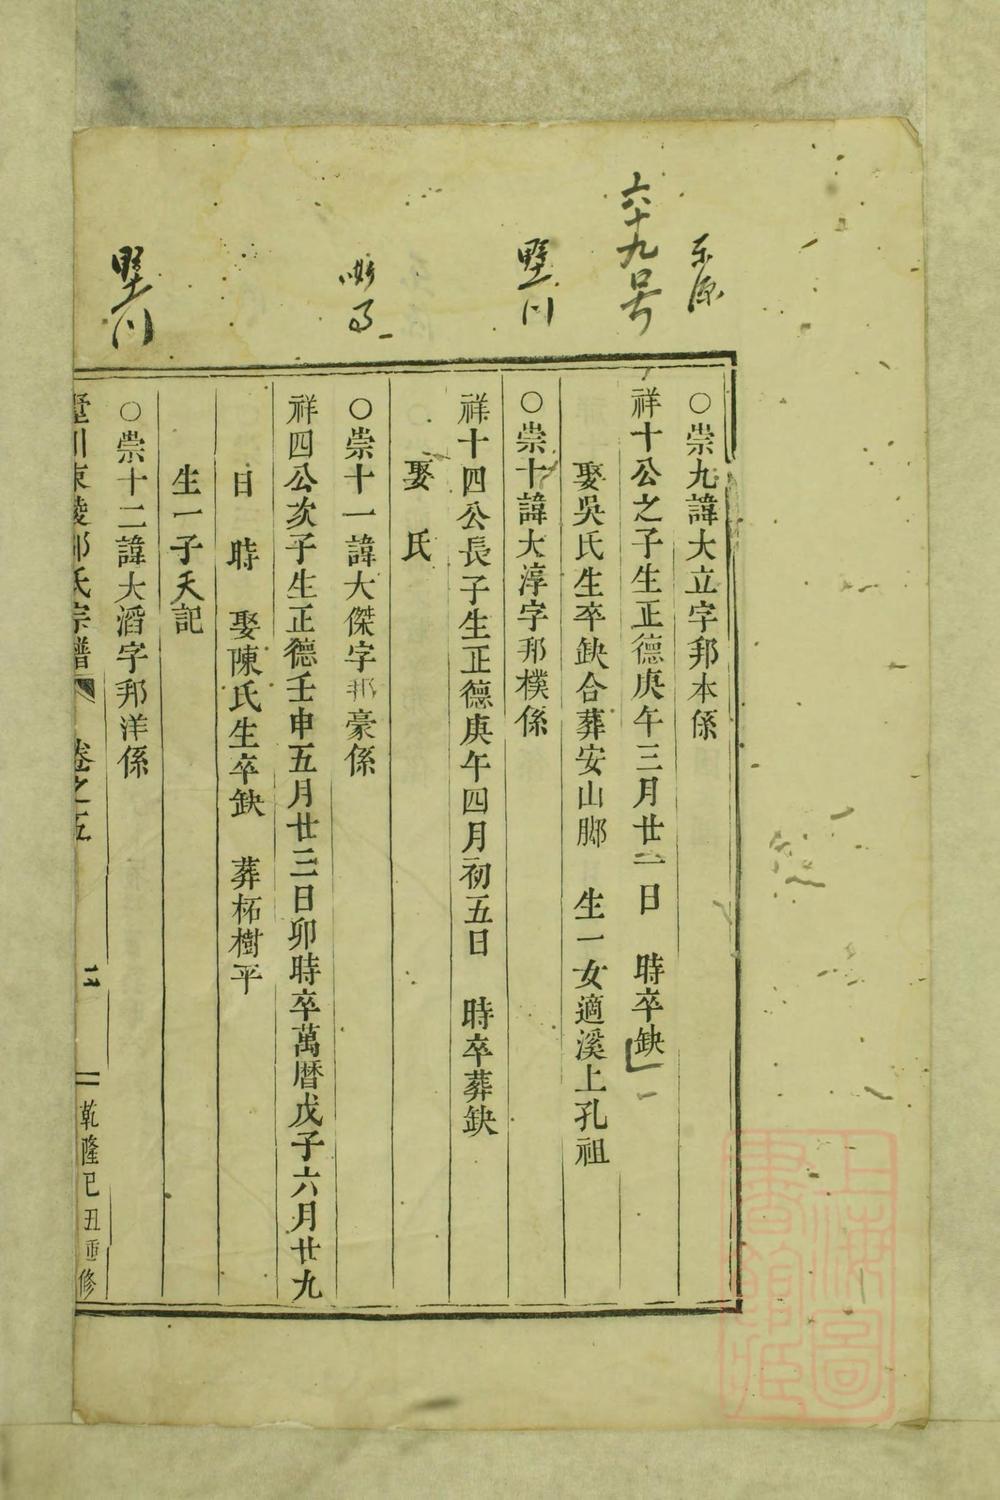 六十九号
墅川
墅川
○崇九諱大立字邦本係
祥十公之子生正德庚午三月廿一日　時卒缺
娶吳氏生卒缺合葬安山腳　生一女適溪上孔祖
○崇十諱大淳字邦樸係
祥十四公長子生正德庚午四月初五日　時卒葬缺
娶　氏
○崇十一諱大傑字邦豪係
祥四公次子生正德壬申五月廿三日卯時卒萬曆戊子六月廿九
日　時　娶陳氏生卒缺　葬柘樹平
生一子天記
○崇十二諱大滔字邦洋係
墅川東陵邵氏宗譜　卷之五　乾隆己丑重修
上海圖書館藏